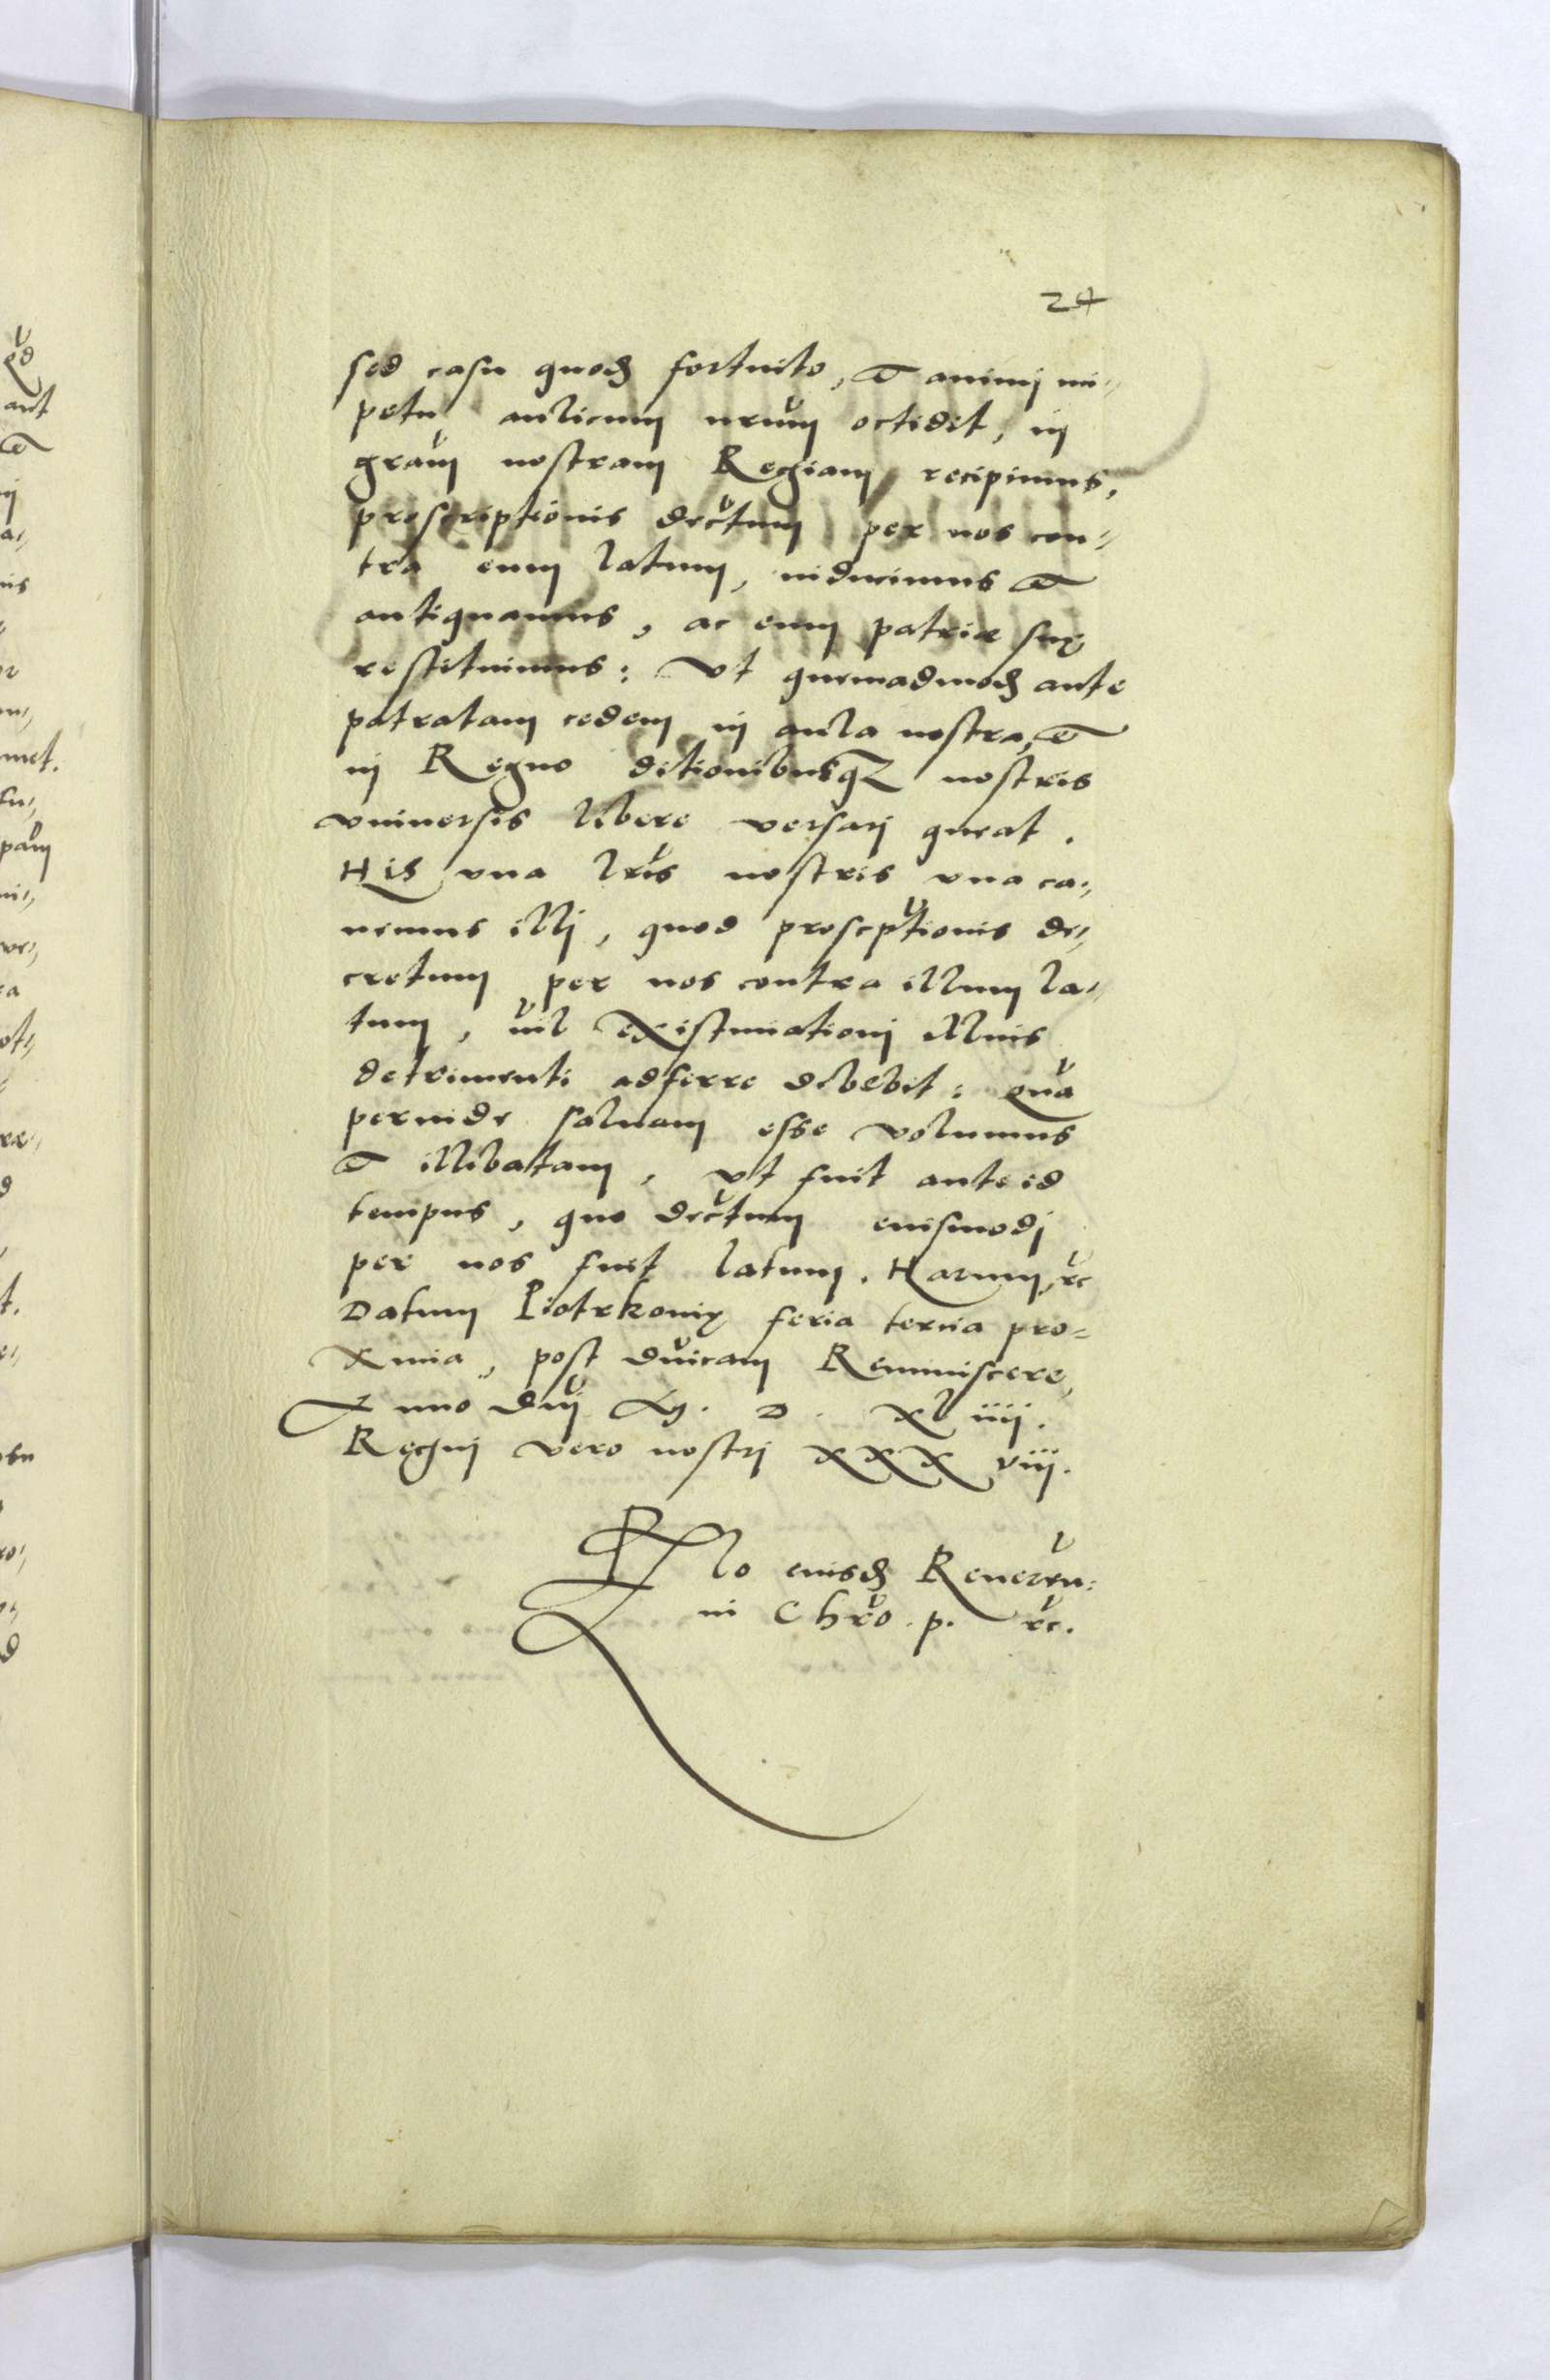 24
sed casu quoda͂ fortuito, et animi im„
petu aulicum nr̃um occidit, in
gra͂m nostram Regiam recipimus,
proscriptionis decr̃tum per nos con„
tra eum latum, inducimus et
antiquamus, ac eum patriæ suę
restituimus: Vt quemadmodu͂ ante
patratam cedem in aula nostra, et
in Regno ditionibusq3 nostris
vniuersis libere versari queat.
His vna lr̃is nostris vna ca„
uemus illi, quod proscp̃tionis de„
cretum per nos contra illum la„
tum, nil existimationi illius
detrimenti adferre debebit: qua͂
perinde saluam esse volumus
et illibatam, vt fuit ante id
tempus, quo decr̃tum eiusmodi
per nos fuit latum. Harum, r̃c
Datum Piotrkouię feria tercia pro=
xima, post dn̄icam Reminiscere,
Anno Dn̄i M. D. xl iiij.
Regni vero nostri xxx viij.
R͂lo eiusde͂ Reueren:
in Chr̃o. p. r̃c.